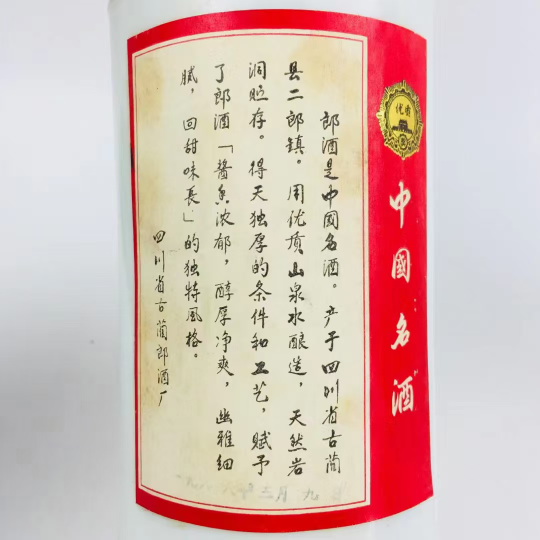 郎酒是中國名酒。产于四川省古蔺
县二郎镇。用优质山泉水酿造，天然岩
洞贮存。得天独厚的条件和工艺，赋予
了郎酒「醬香浓郁，醇厚净爽，幽雅细
腻，回甜味長」的独特風格。
四川省古蔺郎酒厂
三月九日
优质
中國名酒